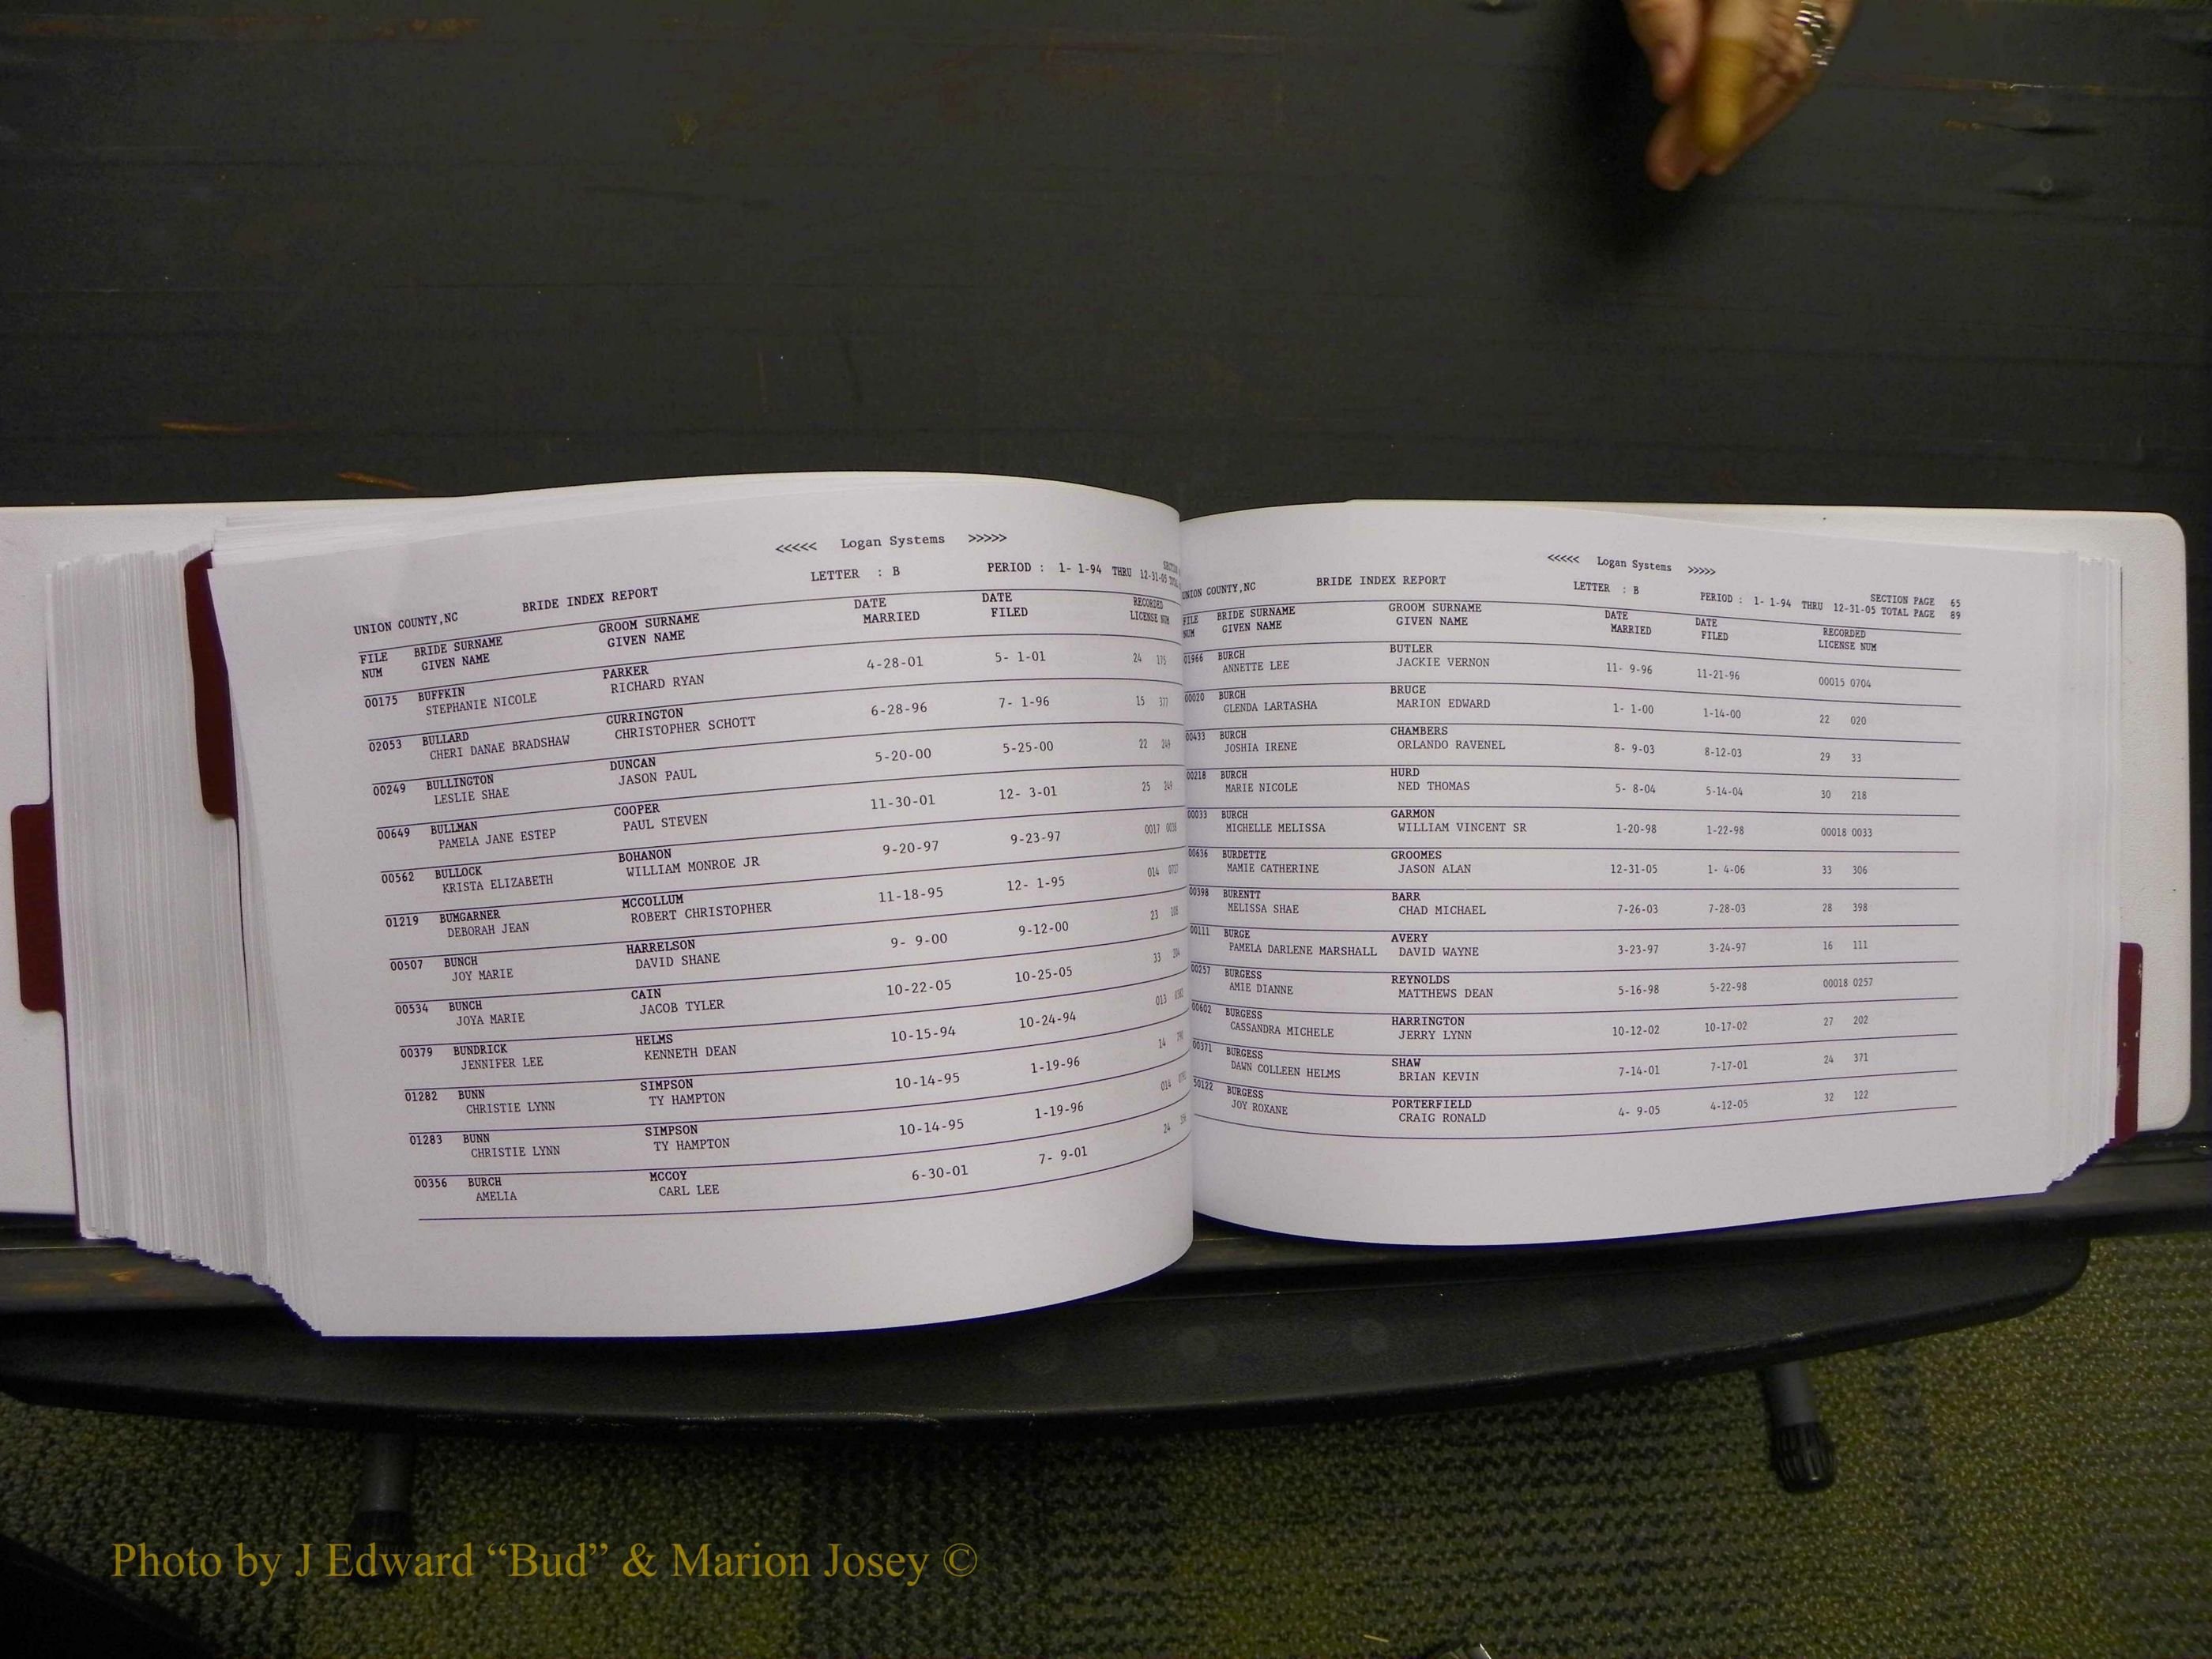 <<<<< Logan Systems >>>>>
UNION COUNTY,NC BRIDE INDEX REPORT LETTER : B PERIOD : 1- 1-94 THRU 12-31-05
FILE BRIDE SURNAME GROOM SURNAME DATE DATE RECORDED
NUM GIVEN NAME GIVEN NAME MARRIED FILED LICENSE NUM
00175 BUFFKIN PARKER 4-28-01 5- 1-01 24 175
STEPHANIE NICOLE RICHARD RYAN
02053 BULLARD CURRINGTON 6-28-96 7- 1-96 15 377
CHERI DANAE BRADSHAW CHRISTOPHER SCHOTT
00249 BULLINGTON DUNCAN 5-20-00 5-25-00 22 249
LESLIE SHAE JASON PAUL
00649 BULLMAN COOPER 11-30-01 12- 3-01 25
PAMELA JANE ESTEP PAUL STEVEN
00562 BULLOCK BOHANON 9-20-97 9-23-97 0017
KRISTA ELIZABETH WILLIAM MONROE JR
01219 BUMGARNER MCCOLLUM 11-18-95 12- 1-95 014
DEBORAH JEAN ROBERT CHRISTOPHER
00507 BUNCH HARRELSON 9- 9-00 9-12-00 23
JOY MARIE DAVID SHANE
00534 BUNCH CAIN 10-22-05 10-25-05 33
JOYA MARIE JACOB TYLER
00379 BUNDRICK HELMS 10-15-94 10-24-94 013
JENNIFER LEE KENNETH DEAN
01282 BUNN SIMPSON 10-14-95 1-19-96 14
CHRISTIE LYNN TY HAMPTON
01283 BUNN SIMPSON 10-14-95 1-19-96 014
CHRISTIE LYNN TY HAMPTON
00356 BURCH MCCOY 6-30-01 7- 9-01 24
AMELIA CARL LEE
<<<<< Logan Systems >>>>>
UNION COUNTY,NC BRIDE INDEX REPORT LETTER : B PERIOD : 1- 1-94 THRU 12-31-05 SECTION PAGE 65
TOTAL PAGE 89
FILE BRIDE SURNAME GROOM SURNAME DATE DATE RECORDED
NUM GIVEN NAME GIVEN NAME MARRIED FILED LICENSE NUM
01966 BURCH BUTLER 11- 9-96 11-21-96 00015 0704
ANNETTE LEE JACKIE VERNON
00020 BURCH BRUCE 1- 1-00 1-14-00 22 020
GLENDA LARTASHA MARION EDWARD
00433 BURCH CHAMBERS 8- 9-03 8-12-03 29 33
JOSHIA IRENE ORLANDO RAVENEL
00218 BURCH HURD 5- 8-04 5-14-04 30 218
MARIE NICOLE NED THOMAS
00033 BURCH GARMON 1-20-98 1-22-98 00018 0033
MICHELLE MELISSA WILLIAM VINCENT SR
00636 BURDETTE GROOMES 12-31-05 1- 4-06 33 306
MAMIE CATHERINE JASON ALAN
00398 BURENTT BARR 7-26-03 7-28-03 28 398
MELISSA SHAE CHAD MICHAEL
00111 BURGE AVERY 3-23-97 3-24-97 16 111
PAMELA DARLENE MARSHALL DAVID WAYNE
00257 BURGESS REYNOLDS 5-16-98 5-22-98 00018 0257
AMIE DIANNE MATTHEWS DEAN
00602 BURGESS HARRINGTON 10-12-02 10-17-02 27 202
CASSANDRA MICHELE JERRY LYNN
00371 BURGESS SHAW 7-14-01 7-17-01 24 371
DAWN COLLEEN HELMS BRIAN KEVIN
50122 BURGESS PORTERFIELD 4- 9-05 4-12-05 32 122
JOY ROXANE CRAIG RONALD
Photo by J Edward “Bud” & Marion Josey ©